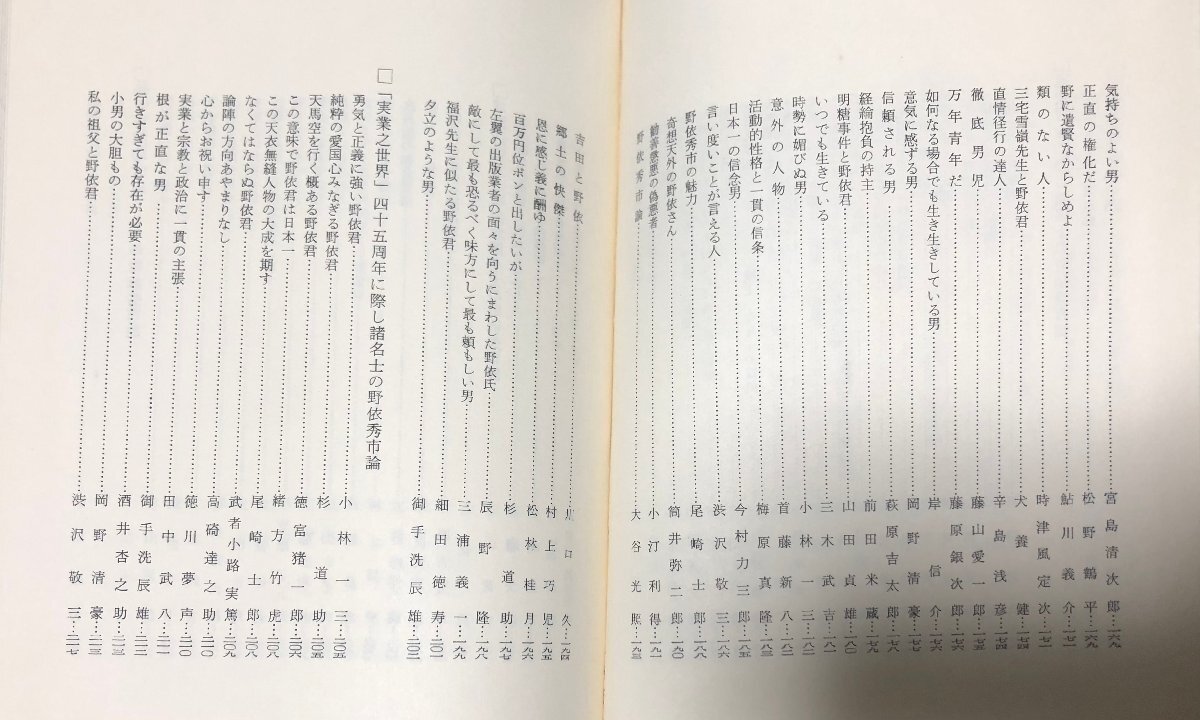 気持ちのよい男……宮島清次郎…一六九
正直の権化だ……松野鶴平…一六九
野に遺賢なからしめよ……鮎川義介…一七一
類のない人……時津風定次…一七二
三宅雪嶺先生と野依君……犬養健…一七四
直情径行の達人……辛島浅彦…一七四
徹底男児……藤山愛一郎…一七五
万年青年だ……藤原銀次郎…一七六
如何なる場合でも生き生きしている男……岸信介…一七六
意気に感ずる男……岡野清豪…一七七
信頼される男……萩原吉太郎…一七八
経綸抱負の持主……前田米蔵…一七九
明糖事件と野依君……山田貞雄…一八〇
いつでも生きている……三木武吉…一八一
時勢に媚びぬ男……小林一三…一八二
意外の人物……首藤新八…一八二
活動的性格と一貫の信条……梅原真隆
日本一の信念男……今村力三郎
言い度いことが言える人……渋沢敬三…一八七
野依秀市の魅力……尾崎士郎…一八八
奇想天外の野依さん……筒井弥二郎…一九〇
勧善懲悪の偽悪者……小汀利得…一九一
野依秀市論……大谷光照…一九三
吉田と野依……久…一九四
郷土の快傑……村上巧児…一九五
恩に感じ義に酬ゆ……松林桂月…一九六
百万円位ポンと出したいが……杉道助…一九七
左翼の出版業者の面々を向うにまわした野依氏……辰野隆…一九八
敵にして最も恐るべく味方にして最も頼もしい男……三浦義一…一九九
福沢先生に似たる野依君……細田徳寿…二〇一
夕立のような男……御手洗辰雄…二〇二
□「実業之世界」四十五周年に際し諸名士の野依秀市論
勇気と正義に強い野依君……小林一三…二〇五
純粋の愛国心みなぎる野依君……杉道助…二〇五
天馬空を行く概ある野依君……徳富猪一郎…二〇六
この意味で野依君は日本一……緒方竹虎…二〇七
この天衣無縫人物の大成を期す……尾崎士郎…二〇八
なくてはならぬ野依君……武者小路実篤…二〇九
論陣の方向あやまりなし……高碕達之助…二一〇
心からお祝い申す……徳川夢声…二一〇
実業と宗教と政治に一貫の主張……田中武八…二一一
根が正直な男……御手洗辰雄…二一三
行きすぎても存在が必要……酒井杏之助…二一三
小男の大胆もの……岡野清豪…二一三
私の祖父と野依君……渋沢敬三…二一七